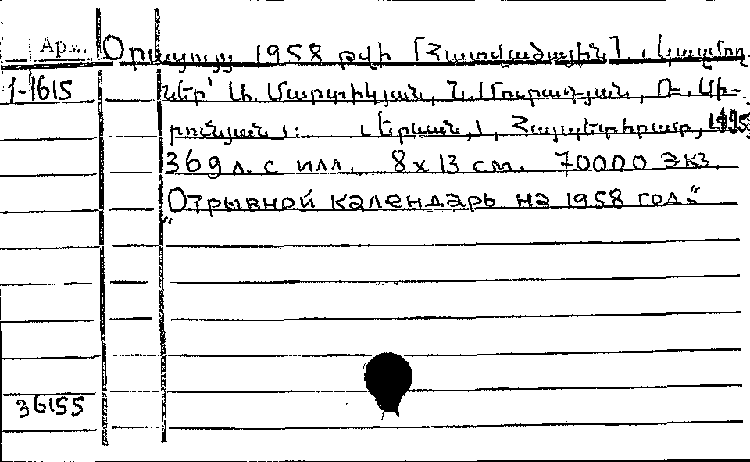 Ар...
Օրացույց 1958 թվի [Հատվածային]. կազմող
1-1615
ներ՝ Ա. Մարտիկյան, Ն. Մուրադյան, Ռ. Սի-
րունյան։ Երևան, Հայպետհրատ, 1958
369 л. с илл. 8 x 13 см. 70000 экз.
"Отрывной календарь на 1958 год."
36155